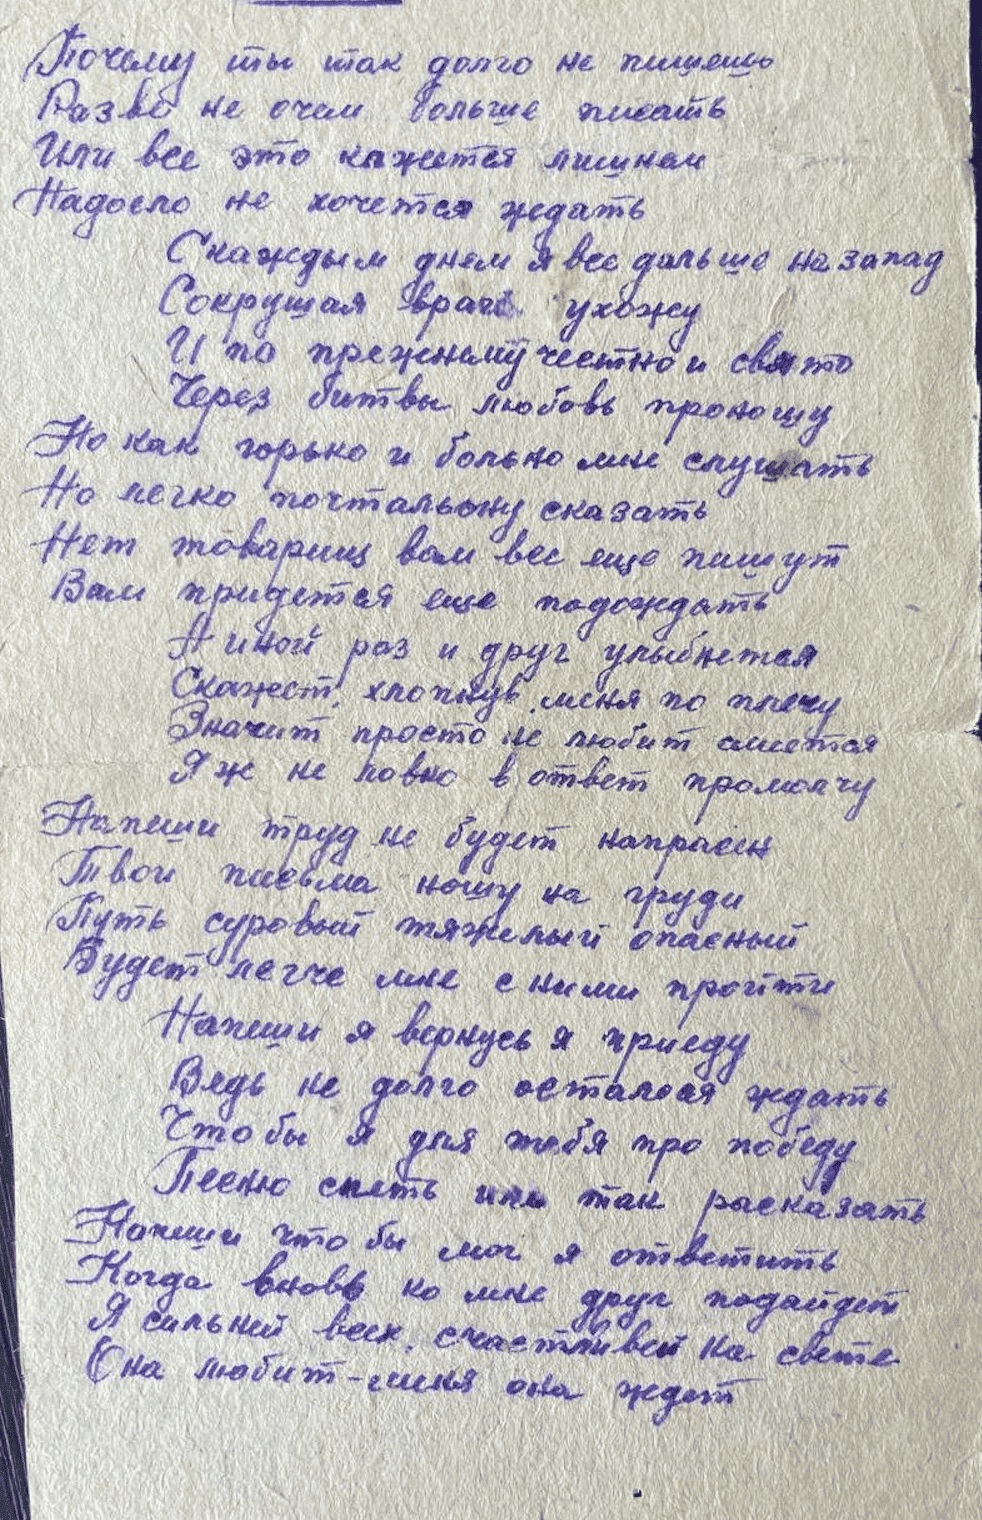 Почему ты так долго не пишешь
Разве не очем больше писать
Или все это кажется лишнем
Надоело не хочется ждать
С каждым днем я все дальше на запад
Сокрушая врага ухожу
И по прежнему честно и свято
Через битвы любовь проношу
Но как горько и больно мне слушать
Но легко почтальону сказать
Нет товарищ вам все еще пишут
Вам придется еще подождать
А иной раз и друг улыбнется
Скажет, хлопнув меня по плечу
Значит просто не любит смеется
Я ж не ловко в ответ промолчу
Напиши труд не будет напрасен
Твои письма ношу на груди
Путь суровый тяжелый опасный
Будет легче мне с ними пройти
Напиши я вернусь я приеду
Ведь не долго осталося ждать
Что бы я для тебя про победу
Песню спеть или так расказать
Напиши что бы мог я ответить
Когда вновь ко мне друг подайдет
Я сильней всех, счастливей на свете
Она любит-меня она ждет